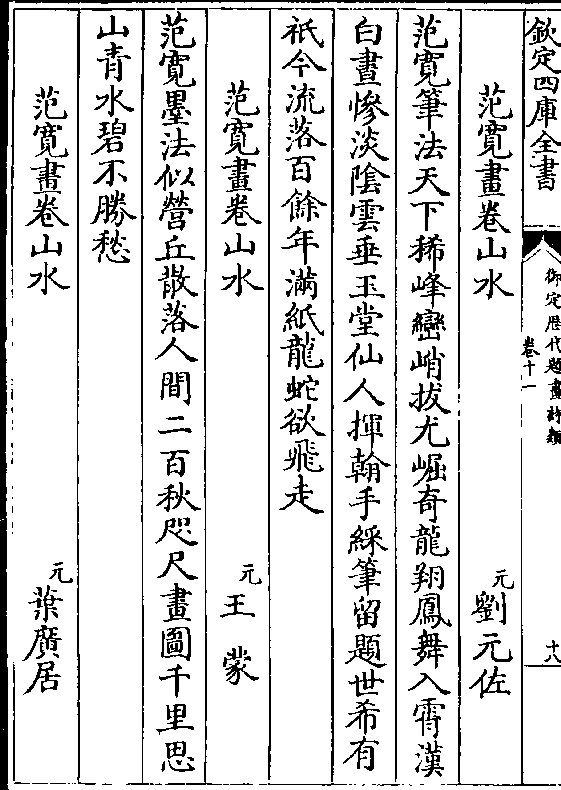 欽定四庫全書
御定歴代題畫詩類
卷十一
十八
范寛畫卷山水
元
劉元佐
范寛筆法天下稀峰巒峭拔尤崛奇龍翔鳳舞入霄漢
白晝慘淡陰雲垂玉堂仙人揮翰手綵筆留題世希有
祇今流落百餘年滿紙龍蛇欲飛走
范寛畫卷山水
元
王蒙
范寛墨法似營丘散落人間二百秋咫尺畫圖千里思
山青水碧不勝愁
范寛畫卷山水
元
葉廣居